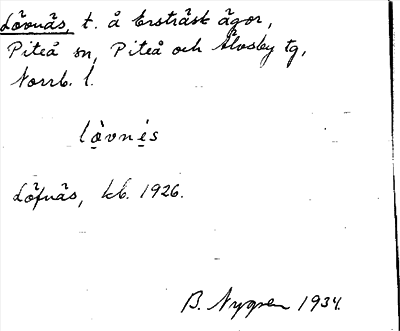 Lövnäs, t. å Ersträsk ägor,
Piteå sn, Piteå och Älvsby tg,
Norrb. l.
lòvnés
Löfnäs, kb. 1926.
B. Nygren 1934.